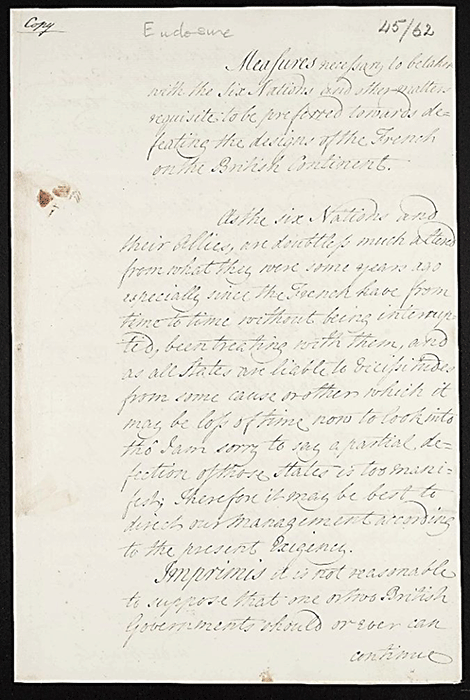 Copy
Enclosure
45/62
Measures necessary to be taken
with the Six Nations and other matters
requisite to be preferred towards de=
feating the designs of the French
on the British Continent.
As the six Nations and
their Allies, are doubtless much altered
from what they were some years ago
especially since the French have from
time to time without being interrup=
ted, been treating with them, and
as all States are liable to Vicissitudes
from some cause or other which it
may be loss of time now to look into
tho' I am sorry to say a partial de=
fection of those States is too mani=
fest; Therefore it may be best to
direct our management according
to the present Exigency.
Imprimis it is not reasonable
to suppose that one or two British
Governments should or ever can
continue